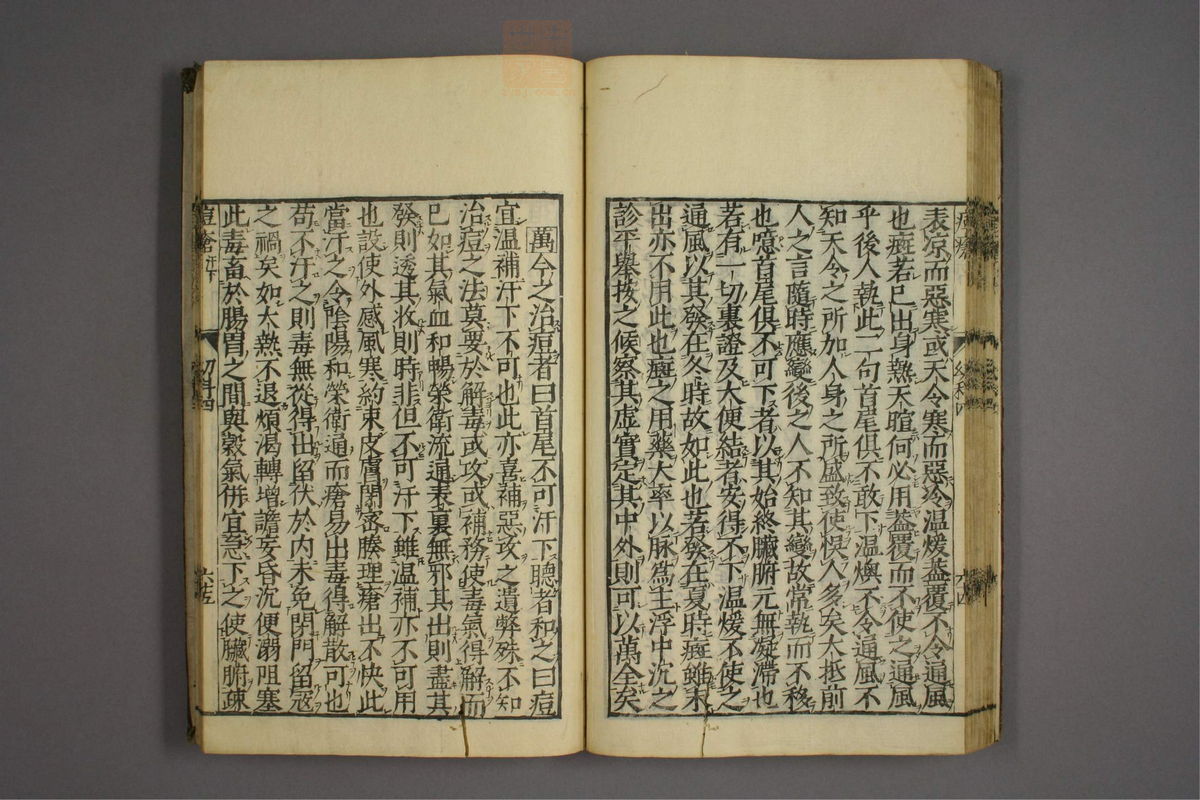 表凉而惡寒或天令寒而惡冷溫煖蓋覆不令通風
也癍若已出身熱天暄何必用蓋覆而不使之通風
乎後人執此二句首尾俱不敢下溫燠不令通風不
知天令之所加人身之所盛致使悮人多矣大抵前
人之言隨時應變後之人不知其變故常執而不移
也噫首尾俱不可下者以其始終臟腑元無凝滯也
若有一切裏證及大便結者安得不下溫煖不使之
通風以其發在冬時故如此也若發在夏時癍雖未
出亦不用此也癍之用藥大率以脉爲主浮中沉之
診平舉按之候察其虚實定其中外則可以萬全矣
萬今之治痘者曰首尾不可汗下聽者和之曰痘
宜溫補汗下不可也此亦喜補惡攻之遺弊殊不知
治痘之法莫要於解毒或攻或補務使毒氣得解而
已如其氣血和暢榮衛流通表裏無邪其出則盡其
發則透其收則時非但不可汗下雖溫補亦不可用
也設使外感風寒約束皮膚閉密腠理瘡出不快此
當汗之令陰陽和榮衛通而瘡易出毒得解散可也
苟不汗之則毒無從得出留伏於內未免閉門留寇
之禍矣如大熱不退煩渴轉增譫妄昏沉便溺阻塞
此毒畜於腸胃之間與穀氣併宜急下之使臟腑疎
痘瘡 幼科四 六十五